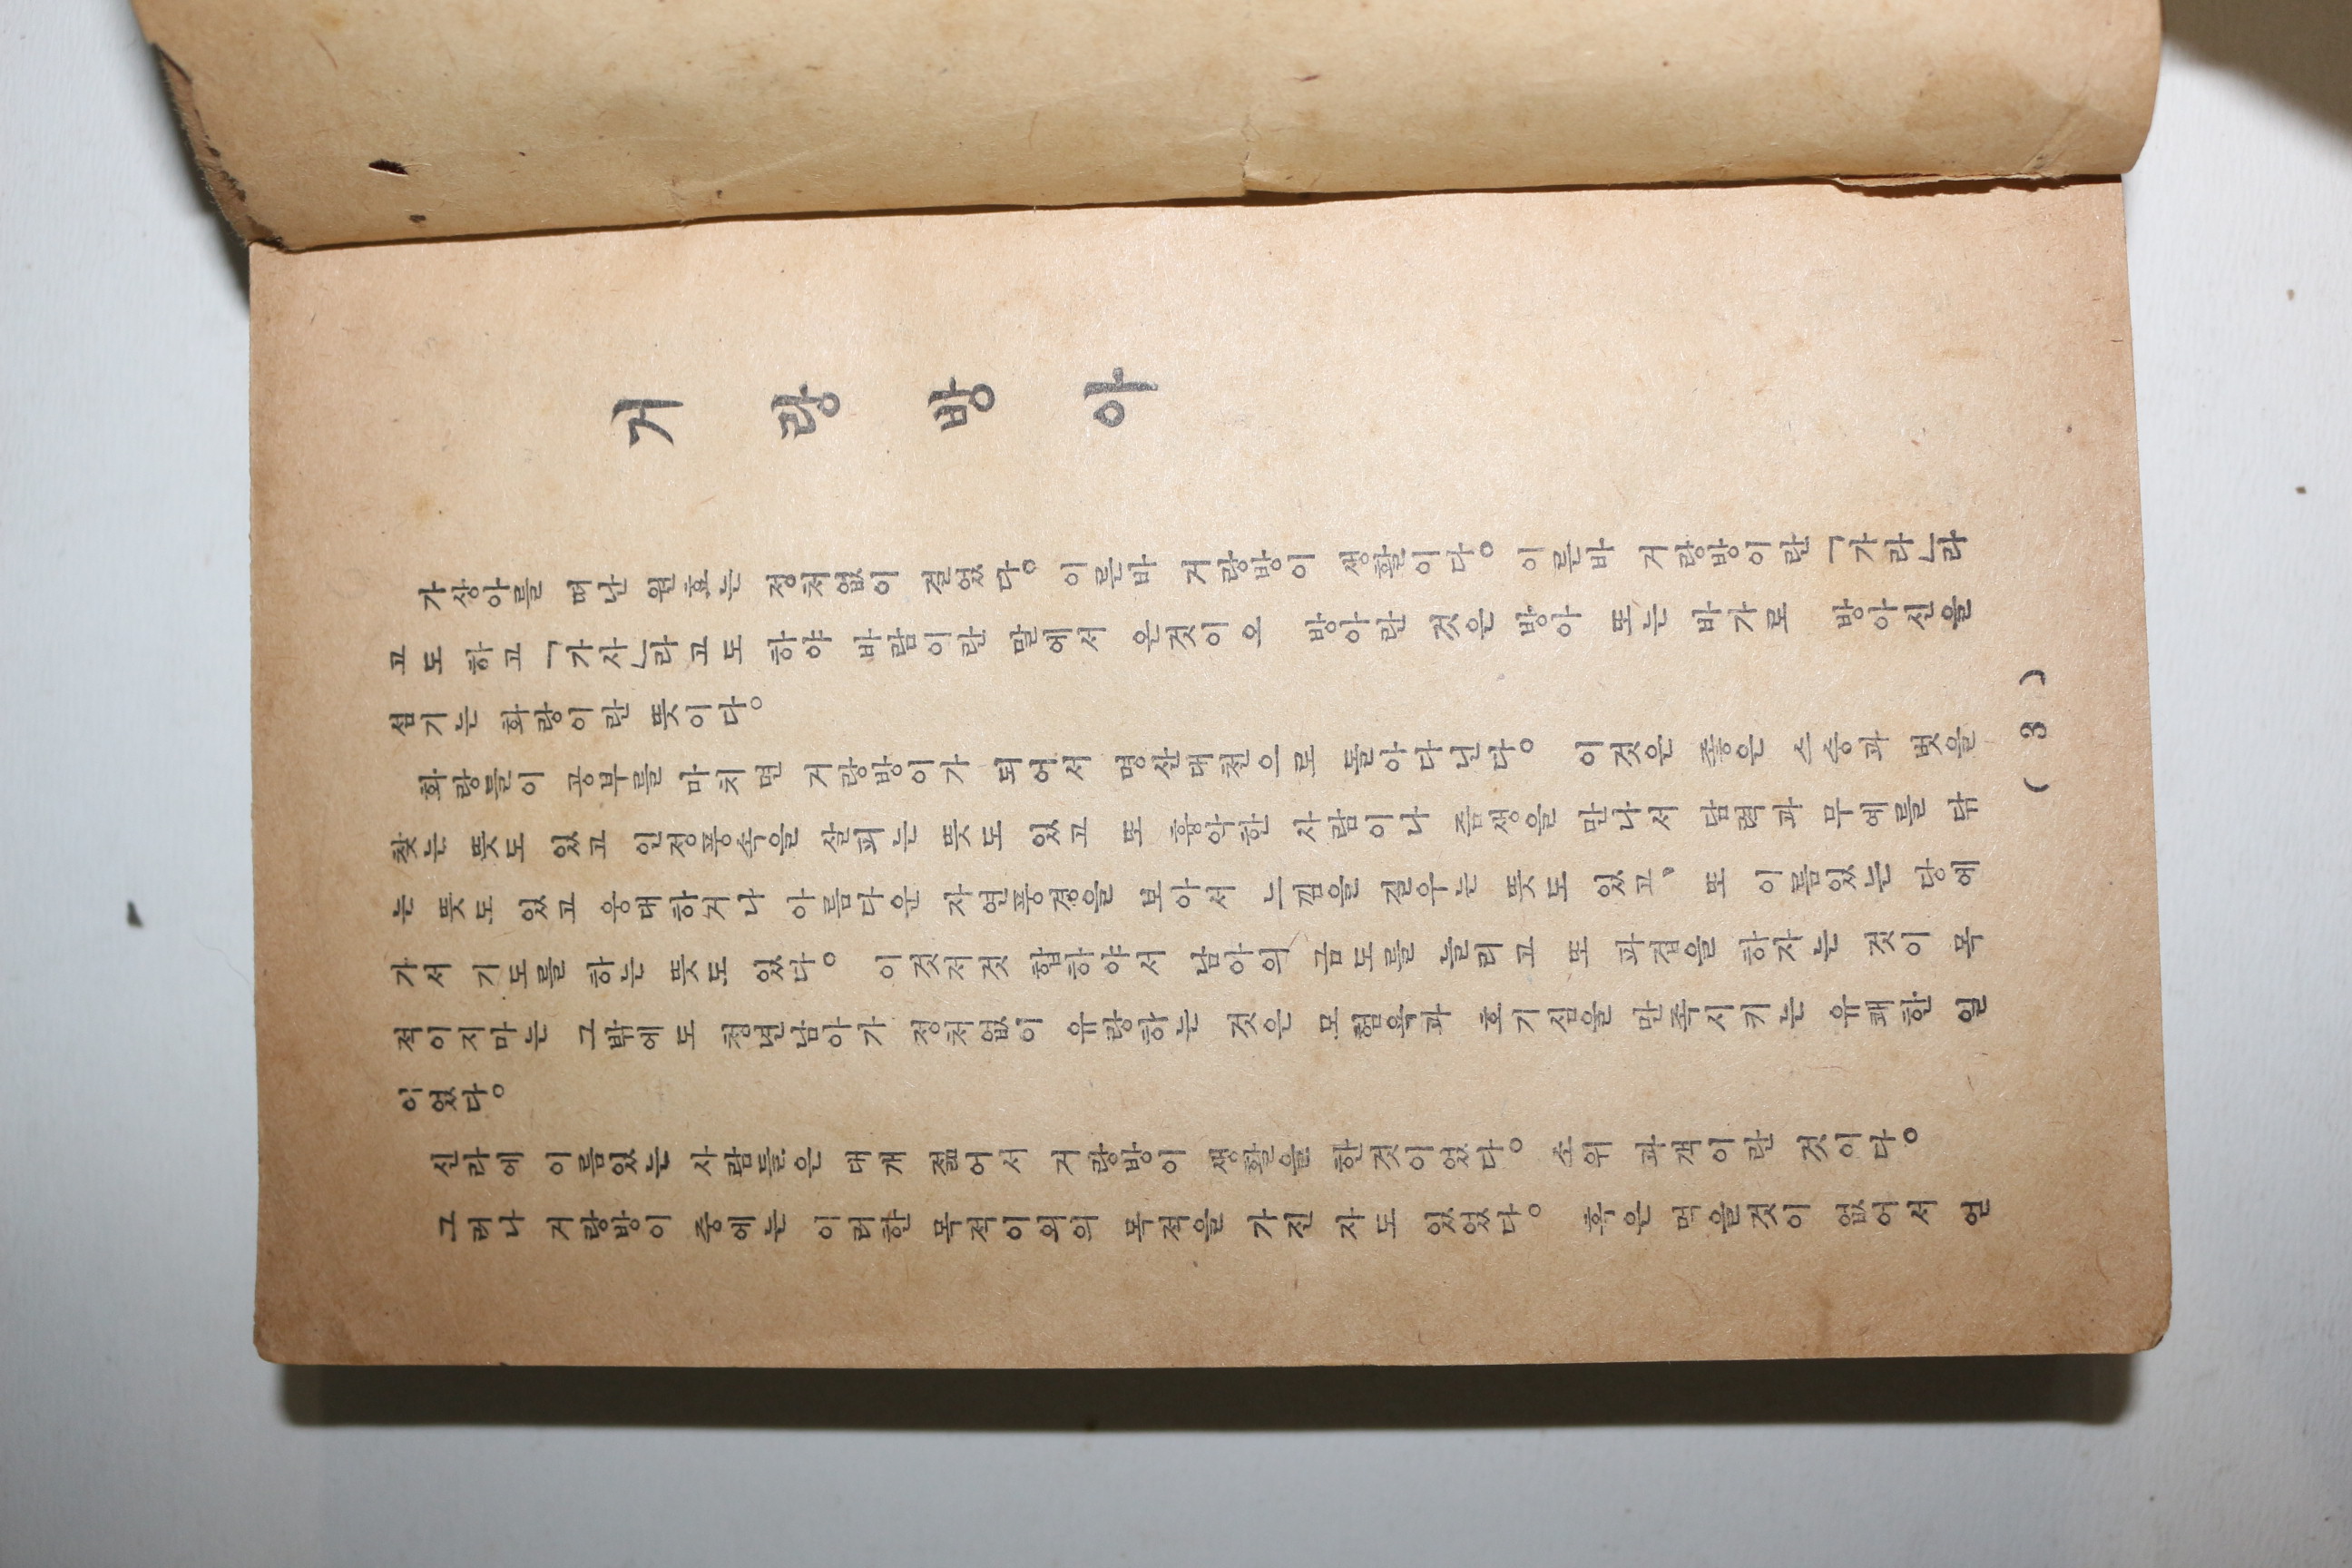 거랑방아
가상아를 떠난 원효는 정처없이 걸었다。 이른바 거랑방이 생활이다。 이른바 거랑방이란 「가라」라
고도 하고 「가사」라고도 하야 바람이란 말에서 온것이오 방아란 것은 방아 또는 바가로 방아신을
섬기는 화랑이란 뜻이다。
화랑들이 공부를 마치면 거랑방이가 되어서 명산대천으로 돌아다닌다。 이것은 좋은 스승과 벗을
찾는 뜻도 있고 인정풍속을 살피는 뜻도 있고 또 흉악한 사람이나 즘생을 만나서 담력과 무예를 닦
는 뜻도 있고 웅대하거나 아름다운 자연풍경을 보아서 느낌을 길우는 뜻도 있고、 또 이름있는 당에
가서 기도를 하는 뜻도 있다。 이것저것 합하야서 남아의 금도를 늘리고 또 파겁을 하자는 것이 목
적이지마는 그밖에도 청년남아가 정처없이 유랑하는 것은 모험욕과 호기심을 만족시키는 유쾌한 일
이었다。
신라에 이름있는 사람들은 대개 젊어서 거랑방이 생활을 한것이었다。 소위 과객이란 것이다。
그러나 거랑방이 중에는 이러한 목적이외의 목적을 가진 자도 있었다。 혹은 먹을것이 없어서 얻
( 3 )